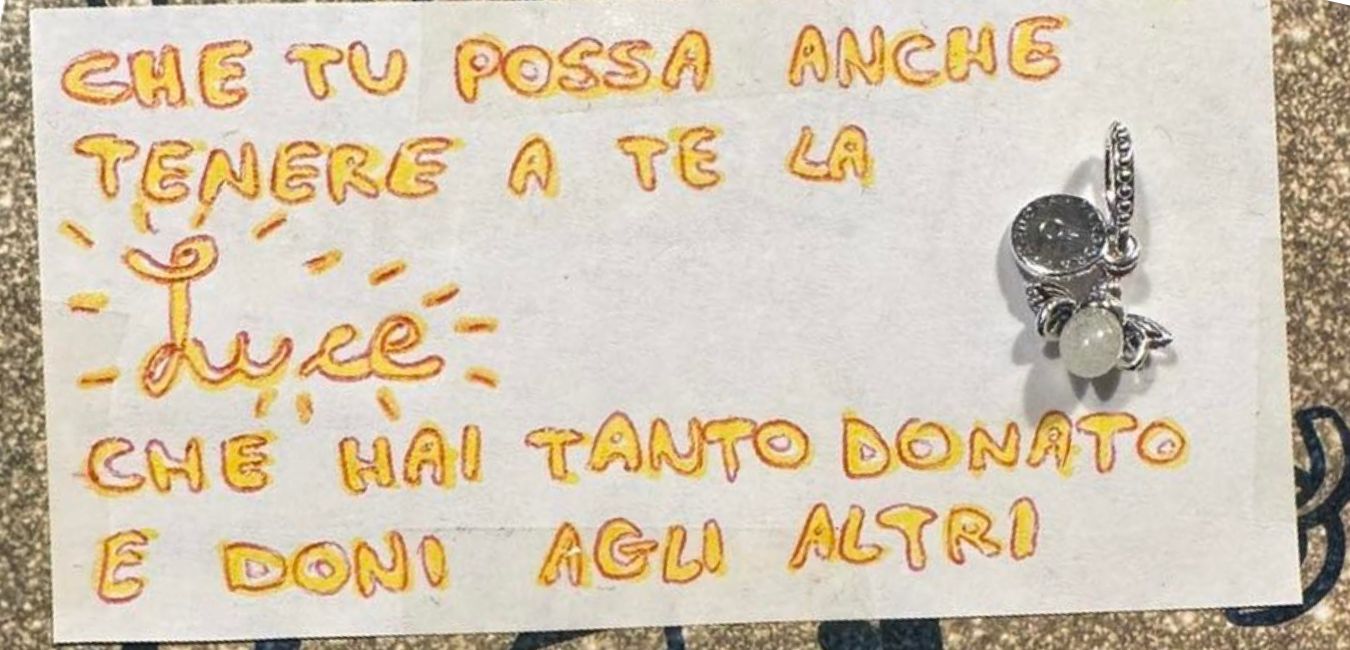 CHE TU POSSA ANCHE
TENERE A TE LA
Luce
CHE HAI TANTO DONATO
E DONI AGLI ALTRI